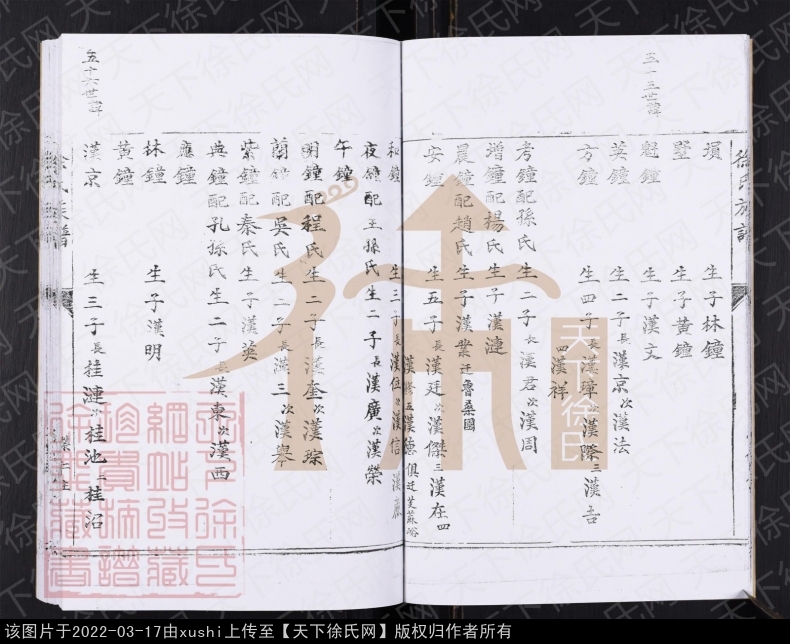 徐氏族譜
五十五世諱
損 生子林鐘
墅 生子黃鐘
魁鐘 生子漢文
英鐘 生二子長漢京次漢法
方鐘 生四子長漢璋漢際三漢吾
四漢祥
考鐘配孫氏 生二子長漢君次漢周
增鐘配楊氏 生子漢漣
晨鐘配趙氏 生子漢業迁魯桑園
安鐘 生五子長漢廷次漢傑三漢在四
漢修五漢德俱迁芙蘇峪
和鐘 生三子長漢位次漢信漢
夜鐘配王孫氏生二子長漢廣次漢榮
午鐘
開鐘配程氏生二子長漢奎次漢琮
蘭鐘配吳氏生二子長漢三次漢舉
紫鐘配秦氏生子漢英
典鐘配孔孫氏生二子長漢東次漢西
應鐘
林鐘 生子漢明
黃鐘
五十六世諱
漢京 生三子長桂漣次桂池三桂沼
徐氏族譜
天下徐氏
天下徐氏網站收藏珍貴族譜藏書
天下徐氏网
该图片于2022-03-17由xushi上传至【天下徐氏网】版权归作者所有